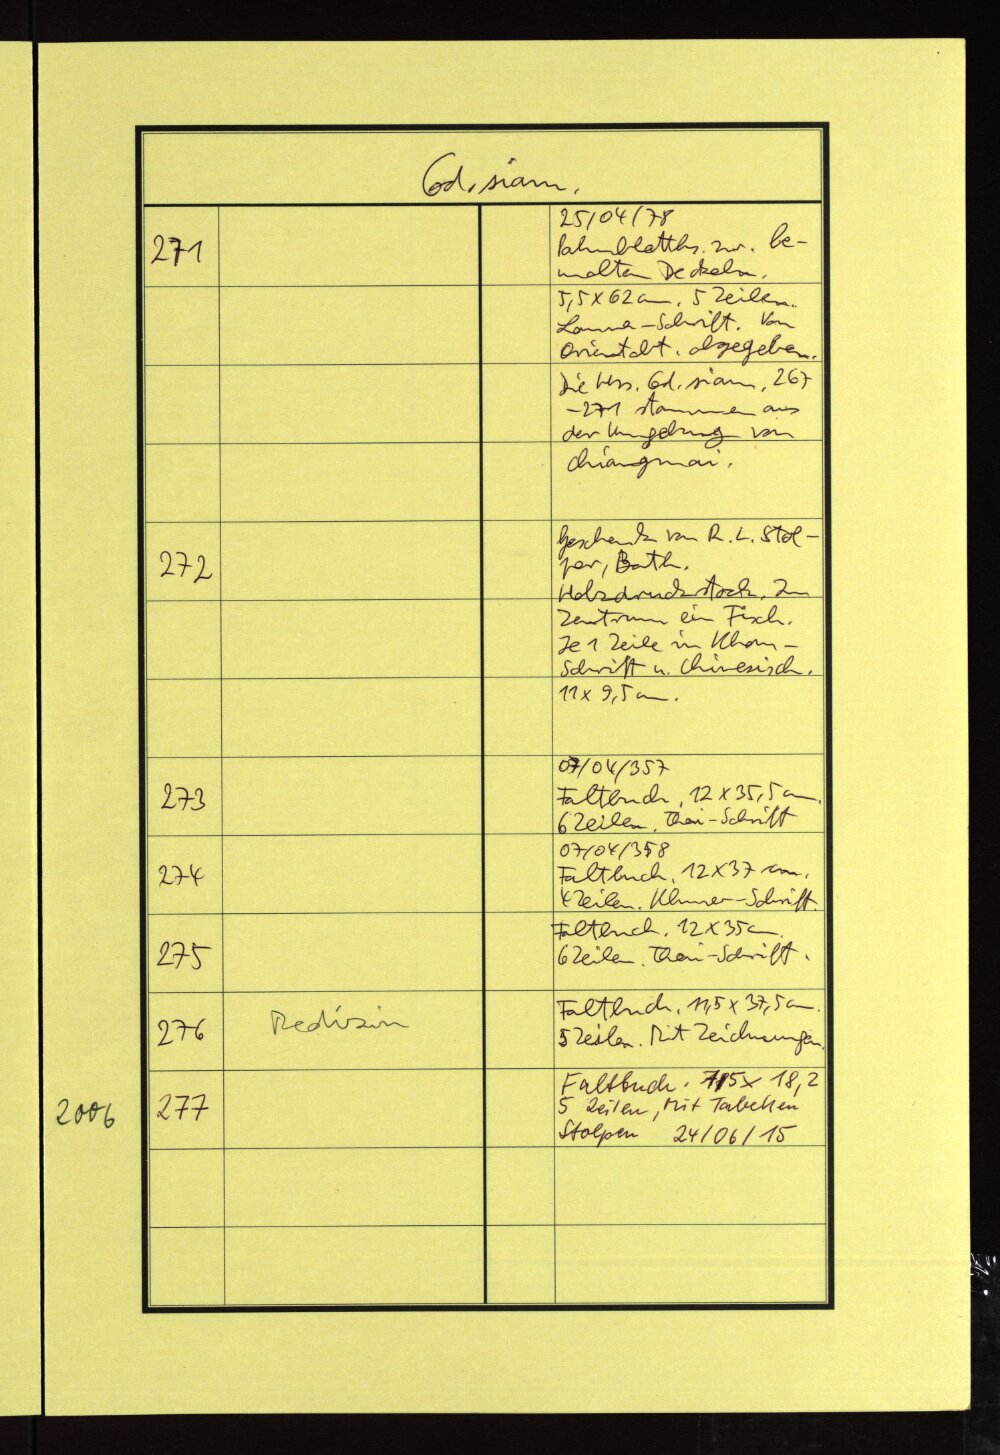 Cod. siam.
271
25/04/78
Palmblatths. zw. be-
malten Deckeln.
5,5 x 62 cm. 5 Zeilen.
Lanna-Schrift. Von
Orientabt. abgegeben.
Die Hss. Cod. siam. 267
-271 stammen aus
der Umgebung von
Chiangmai.
272
Geschenk von R. L. Stol-
per, Bath.
Holzdruckstock. Im
Zentrum ein Fisch.
Je 1 Zeile in Khom-
Schrift u. Chinesisch.
11 x 9,5 cm.
273
07/04/357
Faltbuch, 12 x 35,5 cm.
6 Zeilen. Thai-Schrift
274
07/04/358
Faltbuch, 12 x 37 cm.
4 Zeilen. Khmer-Schrift.
275
Faltbuch. 12 x 35 cm.
6 Zeilen. Thai-Schrift.
276
Medizin
Faltbuch. 11,5 x 37,5 cm.
5 Zeilen. Mit Zeichnungen.
2006
277
Faltbuch. x 18,2
5 Zeilen, Mit Tabellen
Stolper 24/06/15